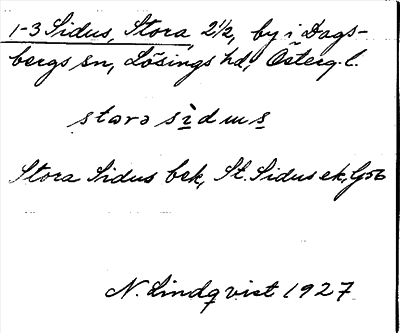 1-3 Sidus, Stora, 2½, by i Dags-
bergs sn, Lösings hd, Österg. l.
starə sìdɯs
Stora Sidus bek, St. Sidus ek, G56
N. Lindqvist 1927